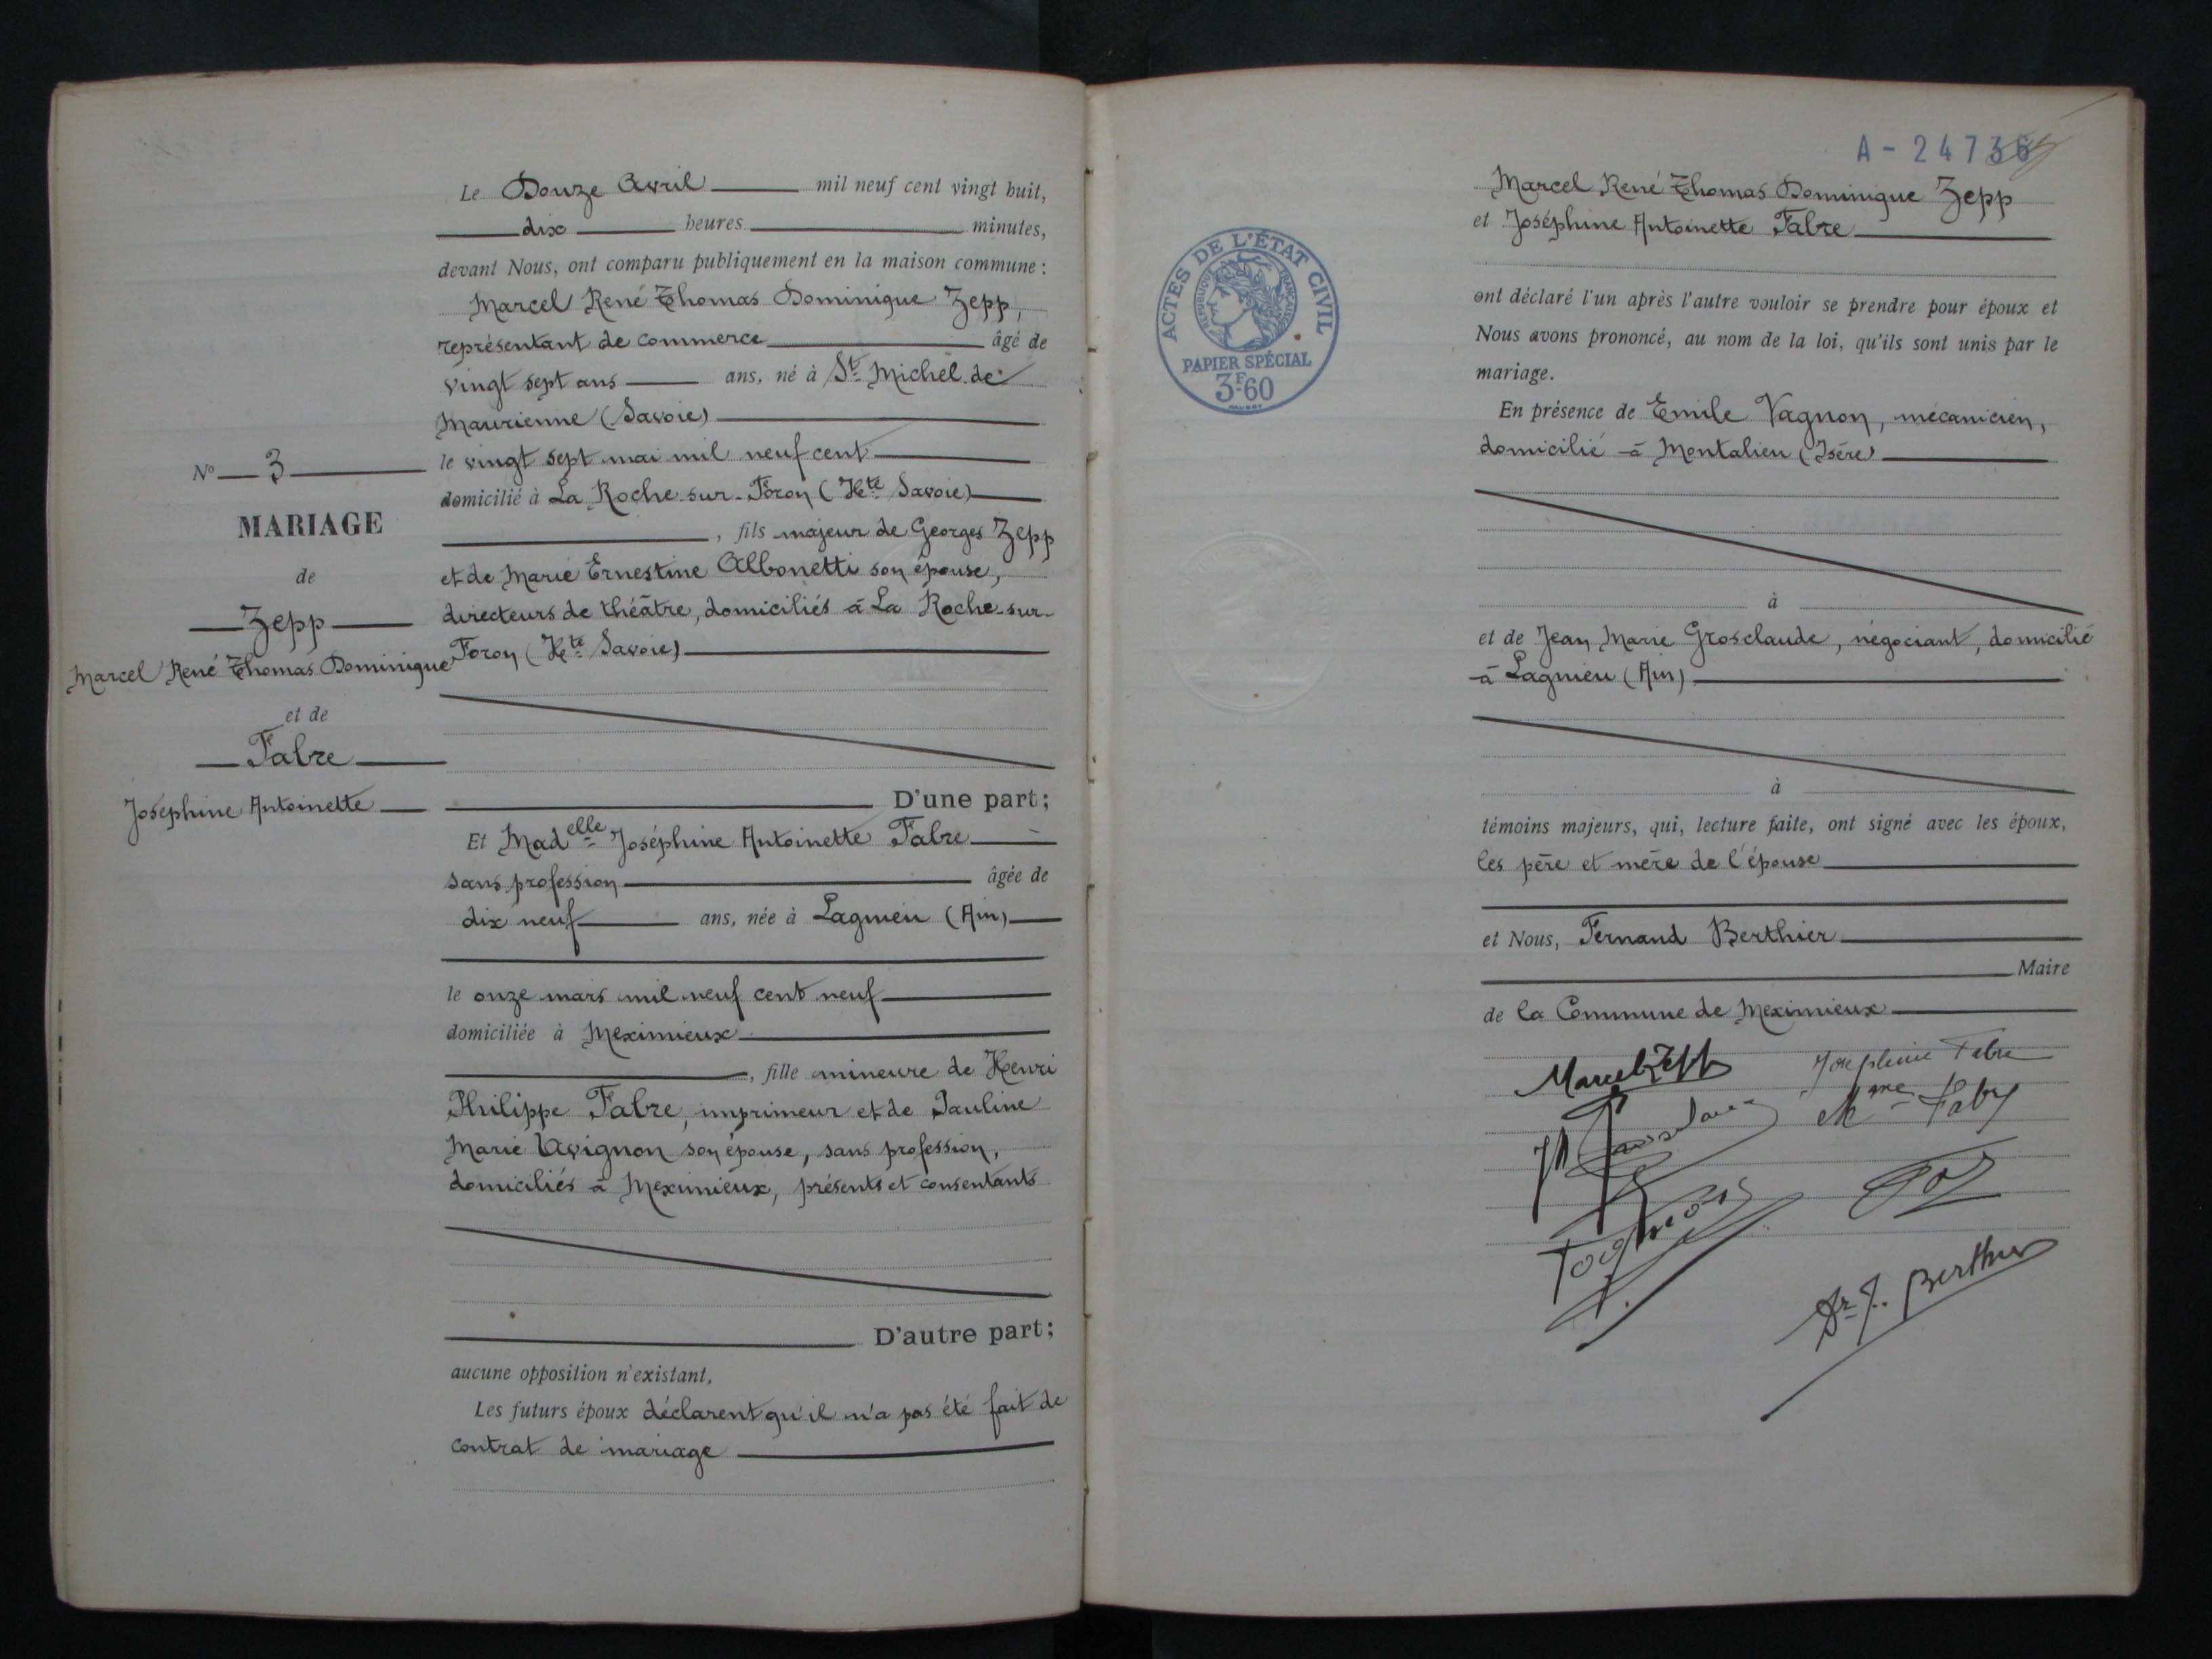 Le Douze Avril mil neuf cent vingt huit,
dix heures minutes,
devant Nous, ont comparu publiquement en la maison commune :
Marcel René Thomas Dominique Zepp,
représentant de commerce âgé de
vingt sept ans ans, né à St Michel de
Maurienne (Savoie)
le vingt sept mai mil neuf cent
domicilié à La Roche-sur-Foron (Hte Savoie)
, fils majeur de Georges Zepp
et de Marie Ernestine Albonetti son épouse,
directeurs de théâtre, domiciliés à La Roche-sur-
Foron (Hte Savoie)
N° 3
MARIAGE
de
Zepp
Marcel René Thomas Dominique
et de
Fabre
Joséphine Antoinette
D'une part ;
Et Madelle Joséphine Antoinette Fabre
sans profession âgée de
dix neuf ans, née à Lagnieu (Ain)
le onze mars mil neuf cent neuf
domiciliée à Meximieux
, fille mineure de Henri
Philippe Fabre, imprimeur et de Pauline
Marie Avignon son épouse, sans profession,
domiciliés à Meximieux, présents et consentants
D'autre part ;
aucune opposition n'existant,
Les futurs époux déclarent qu'il n'a pas été fait de
contrat de mariage
A - 2473
ACTES DE L'ÉTAT CIVIL
RÉPUBLIQUE FRANÇAISE
PAPIER SPÉCIAL
3F60
Marcel René Thomas Dominique Zepp
et Joséphine Antoinette Fabre
ont déclaré l'un après l'autre vouloir se prendre pour époux et
Nous avons prononcé, au nom de la loi, qu'ils sont unis par le
mariage.
En présence de Emile Vagnon, mécanicien,
domicilié à Montalieu (Isère)
à
et de Jean Marie Grosclaude, négociant, domicilié
à Lagnieu (Ain)
à
témoins majeurs, qui, lecture faite, ont signé avec les époux,
les père et mère de l'épouse
et Nous, Fernand Berthier
Maire
de la Commune de Meximieux
Marcel Zepp
Joséphine Fabre
Mme Fabre
Dr F. Berthier